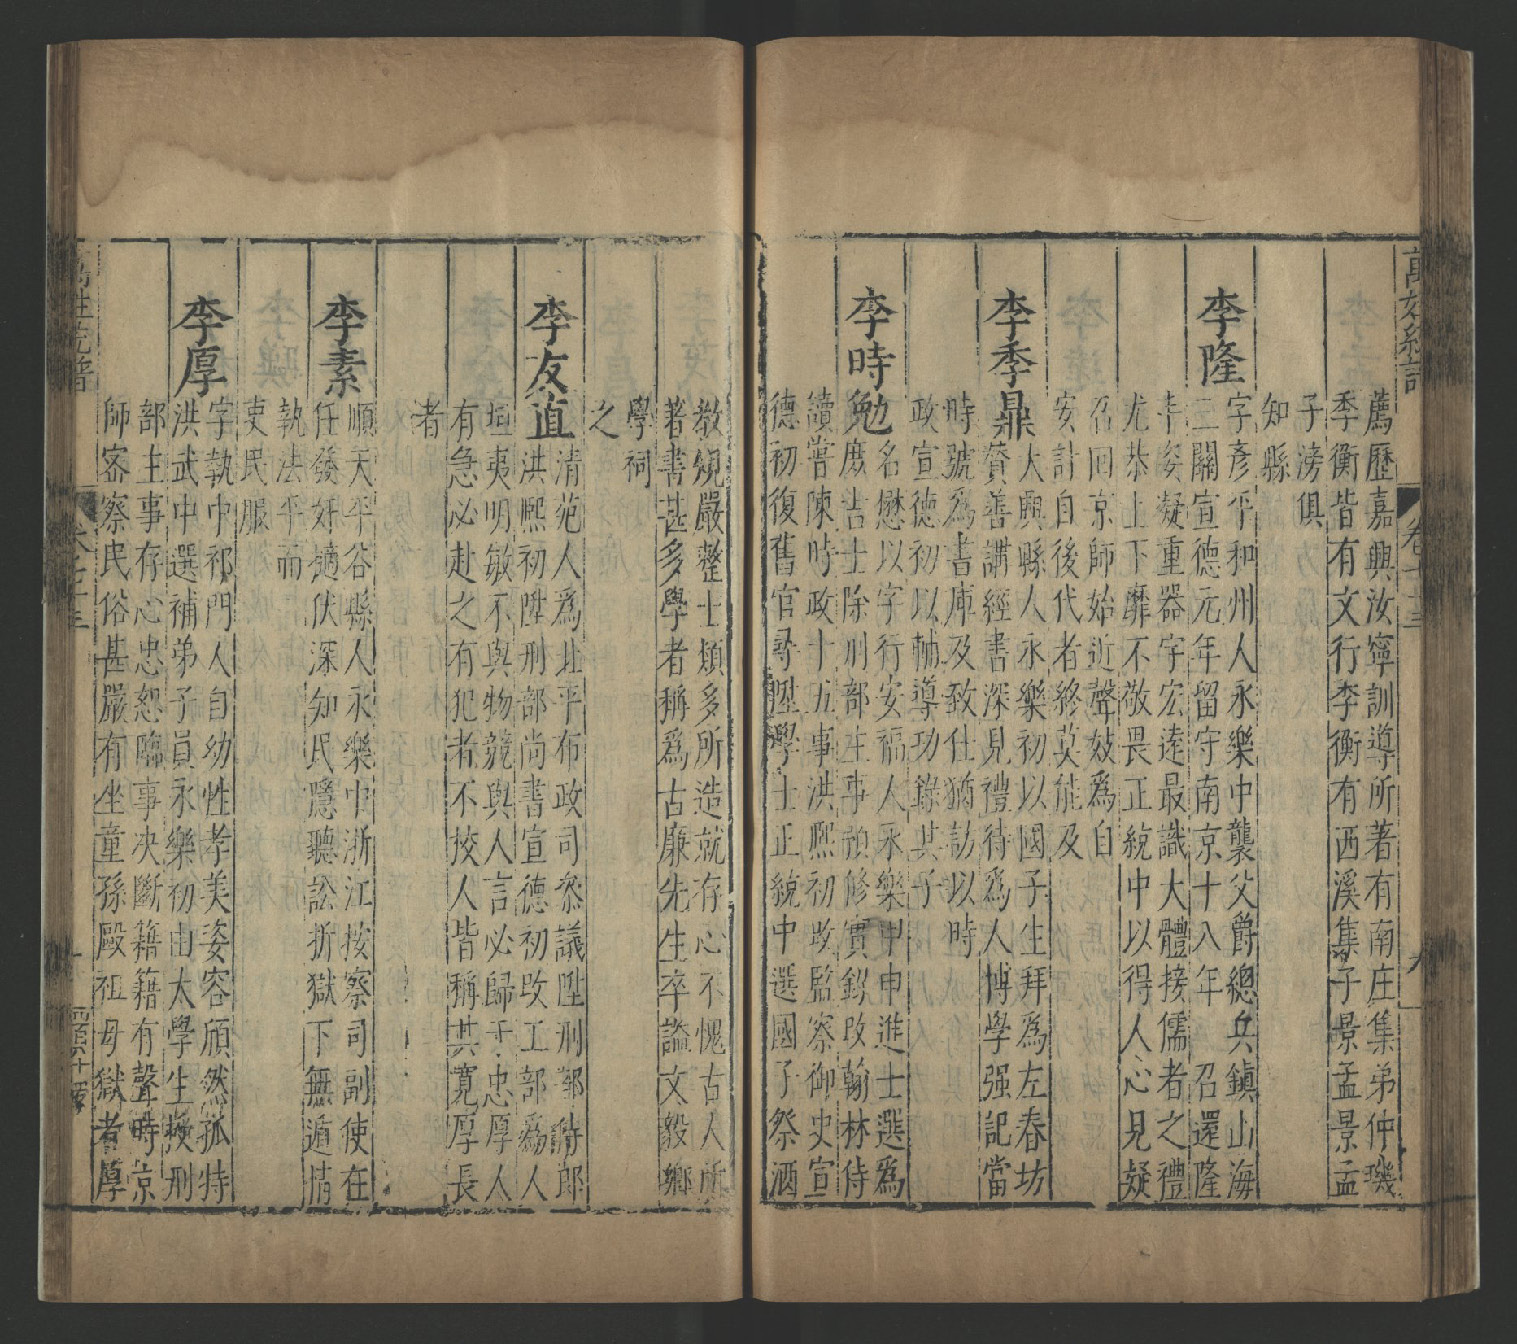 萬姓統譜　卷七十三　九
薦歷嘉興汝寧訓導所著有南庄集弟仲璣
季衡皆有文行李衡有西溪集子景孟景孟
子滂俱
知縣
李隆
字彥平和州人永樂中襲父爵總兵鎮山海
三關宣德元年留守南京十八年　召還隆
丰姿凝重器宇宏遠最識大體接儒者之禮
尤恭上下靡不敬畏正統中以得人心見疑
召回京師始近聲妓爲自
安計自後代者終莫能及
李季鼎
大興縣人永樂初以國子生拜爲左春坊
贊善講經書深見禮待爲人博學强記當
時號爲書庫及致仕猶訪以時
政宣德初以輔導功錄其子
李時勉
名懋以字行安福人永樂甲申進士選爲
庶吉士除刑部主事預修實錄改翰林侍
讀嘗陳時政十五事洪熙初改監察御史宣
德初復舊官尋陞學士正統中選國子祭酒
教規嚴整士類多所造就存心不愧古人所
著書甚多學者稱爲古廉先生卒謚文毅鄉
學祠
之
李友直
清苑人爲北平布政司叅議陞刑部侍郎
洪熙初陞刑部尚書宣德初改工部爲人
坦夷明敏不與物競與人言必歸于忠厚人
有急必赴之有犯者不挍人皆稱其寬厚長
者
李素
順天平谷縣人永樂中浙江按察司副使在
任發奸擿伏深知民隱聽訟折獄下無遁情
執法平而
吏民服
李厚
字執中祁門人自幼性孝美姿容頎然孤特
洪武中選補弟子員永樂初由太學生擬刑
部主事存心忠恕臨事决斷籍籍有聲時京
師審察民俗甚嚴有坐童孫毆祖母獄者厚
萬姓統譜　卷七十三　十